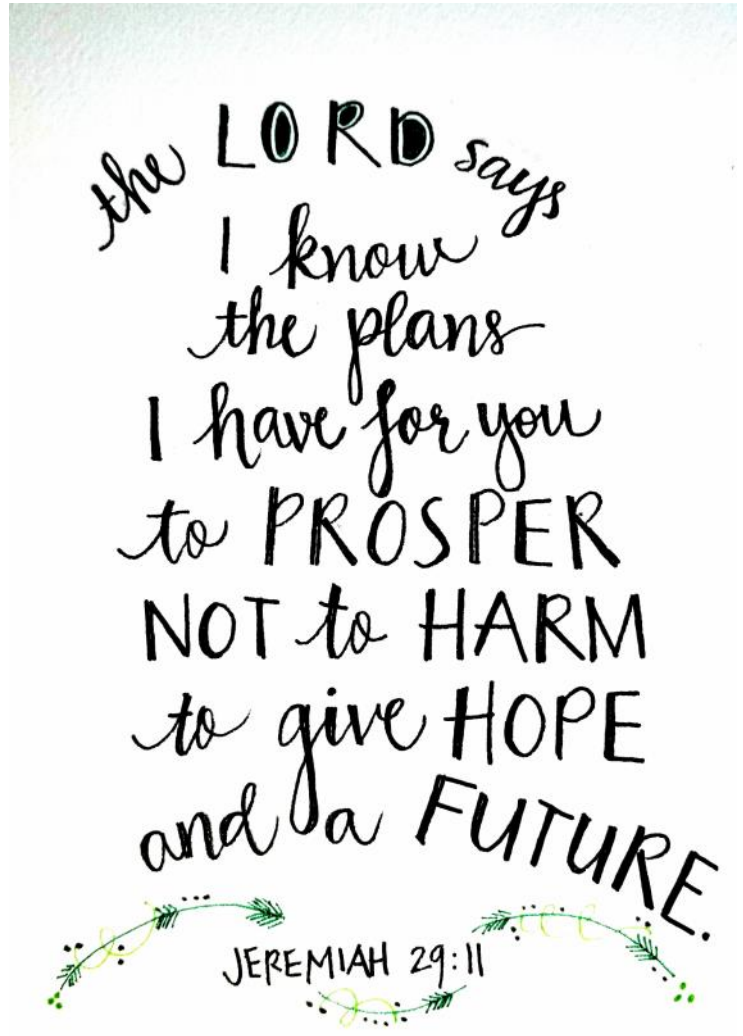 the LORD says
I know
the plans
I have for you
to PROSPER
NOT to HARM
to give HOPE
and a FUTURE.
JEREMIAH 29:11